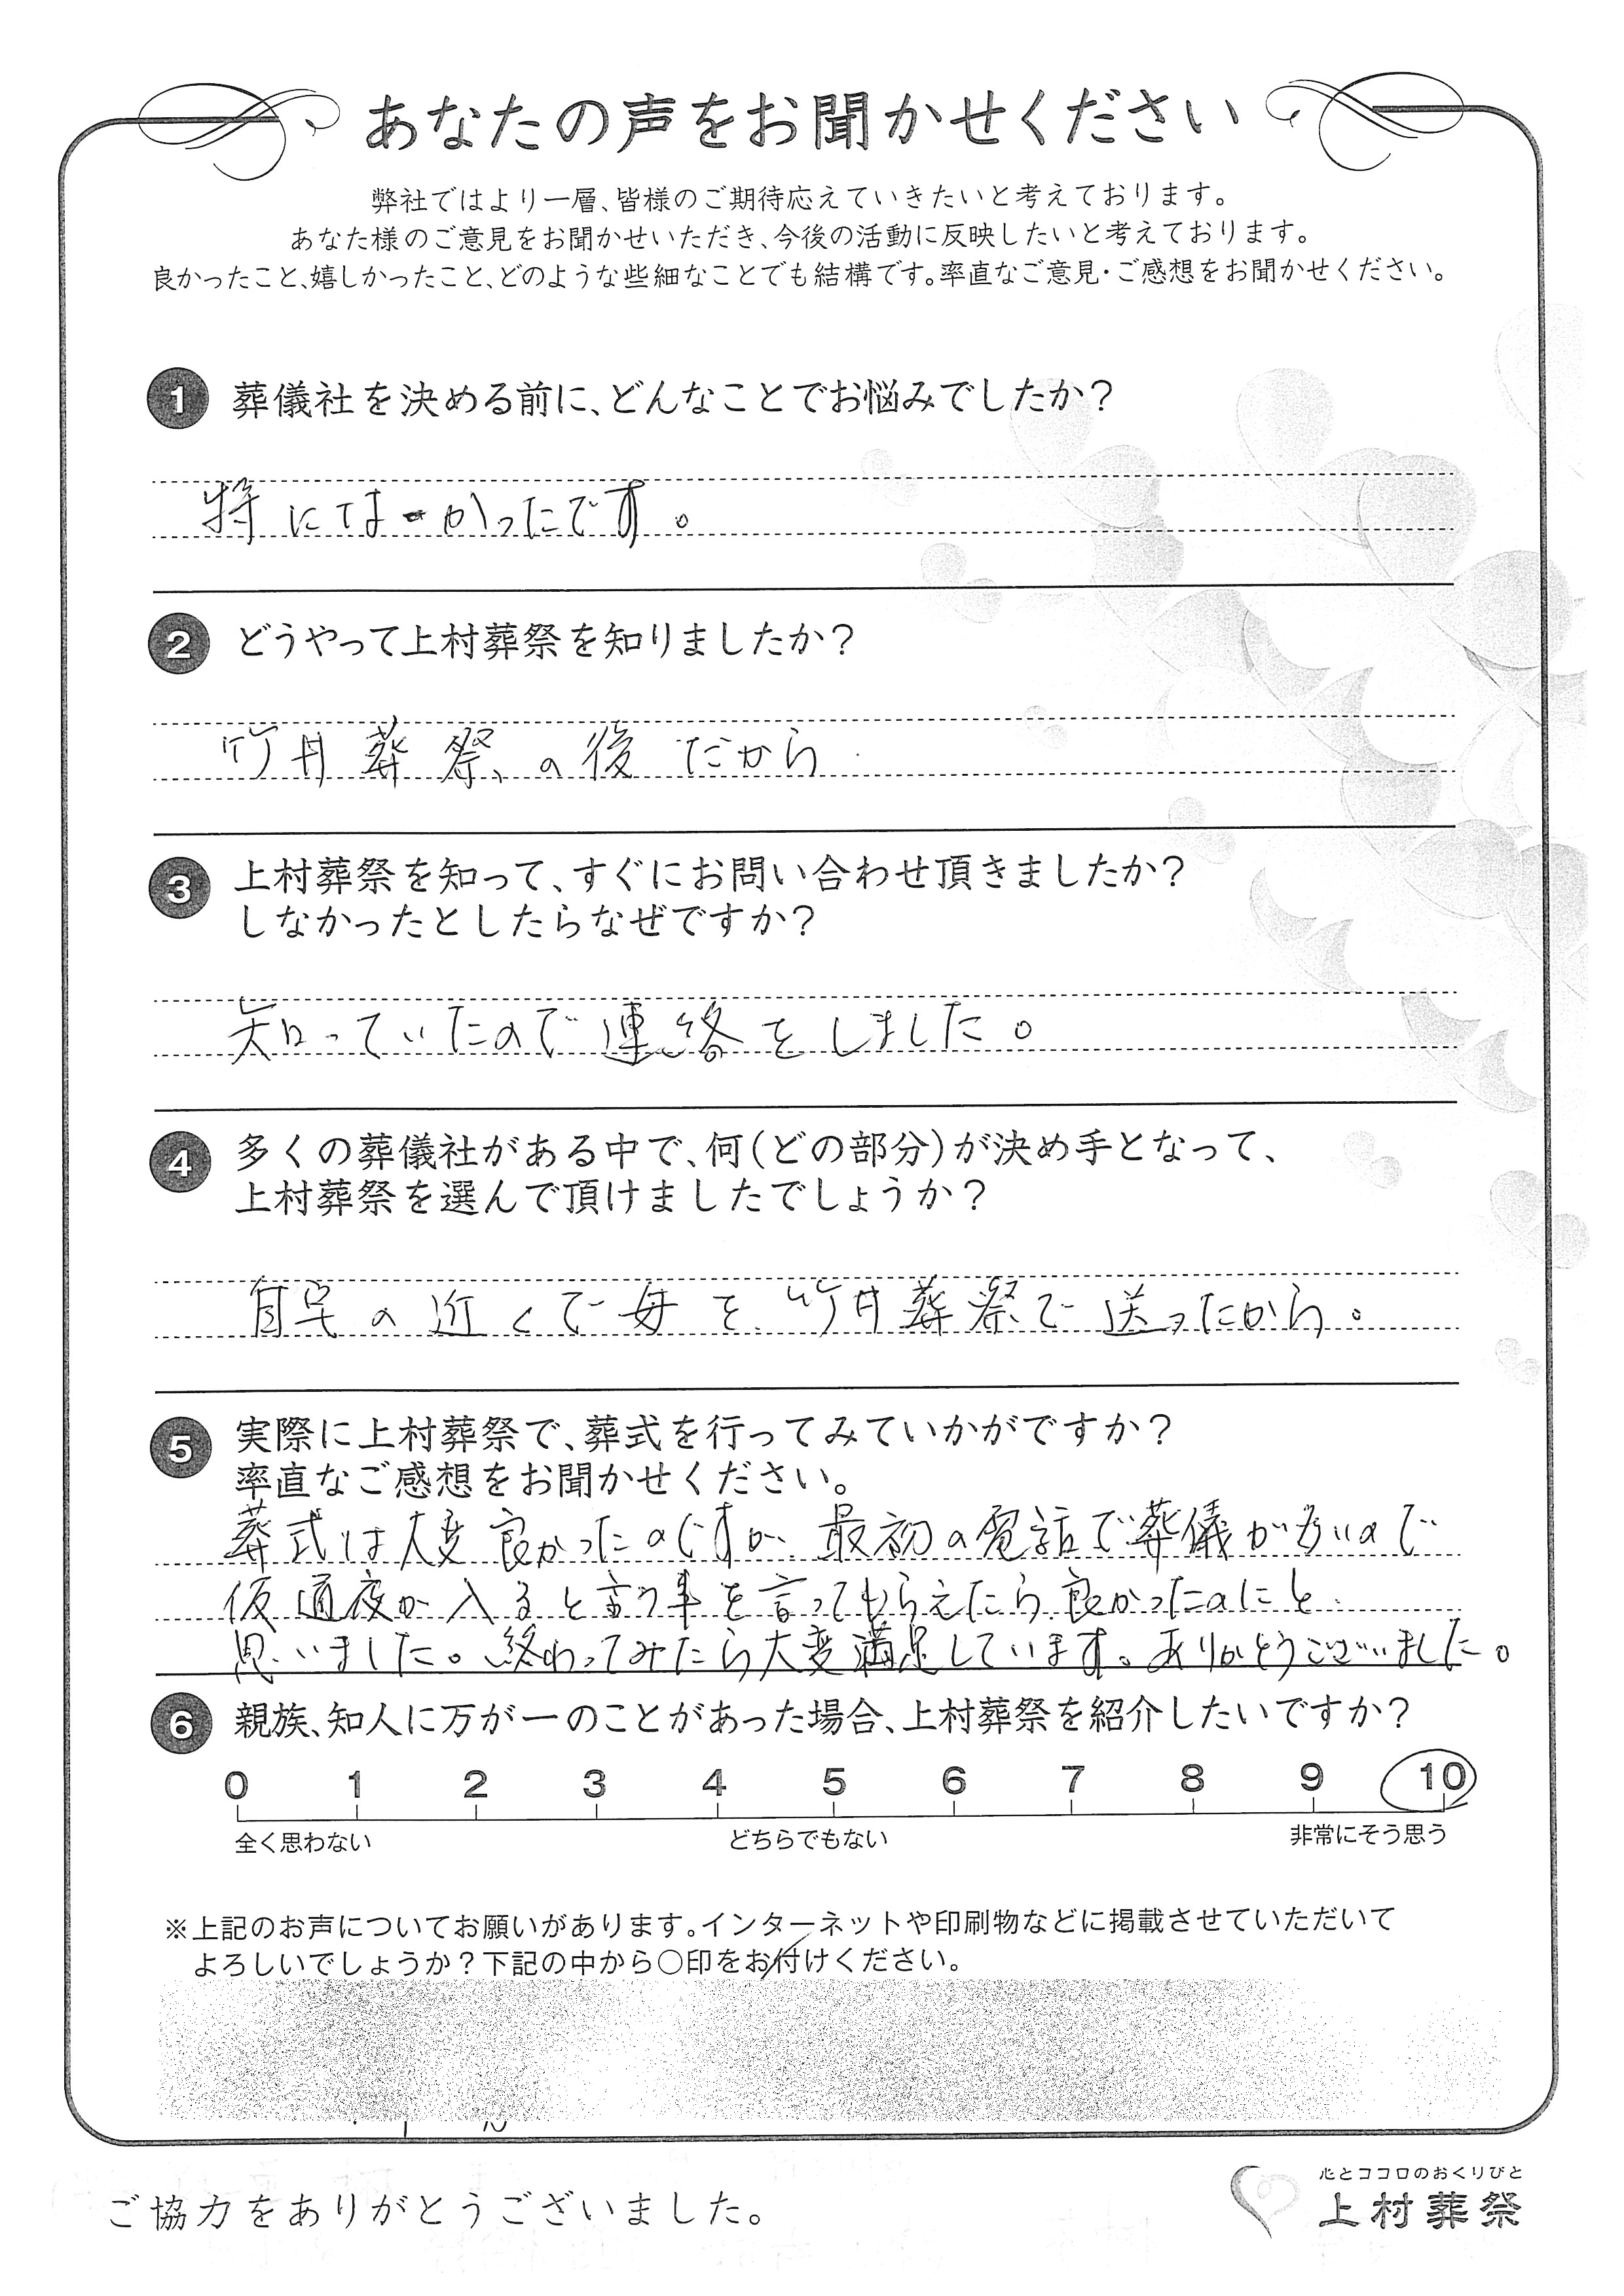 あなたの声をお聞かせください
弊社ではより一層、皆様のご期待応えていきたいと考えております。
あなた様のご意見をお聞かせいただき、今後の活動に反映したいと考えております。
良かったこと、嬉しかったこと、どのような些細なことでも結構です。率直なご意見・ご感想をお聞かせください。
1 葬儀社を決める前に、どんなことでお悩みでしたか?
特にはなかったです。
2 どうやって上村葬祭を知りましたか?
竹井葬祭の後だから
3 上村葬祭を知って、すぐにお問い合わせ頂きましたか?
しなかったとしたらなぜですか?
知っていたので連絡をしました。
4 多くの葬儀社がある中で、何(どの部分)が決め手となって、
上村葬祭を選んで頂けましたでしょうか?
自宅の近くで母を竹井葬祭で送ったから。
5 実際に上村葬祭で、葬式を行ってみていかがですか?
率直なご感想をお聞かせください。
葬式は大変良かったのですが、最初の電話で葬儀が多いので
仮通夜が入ると言う事を言ってもらえたら良かったのにと
思いました。終わってみたら大変満足しています。ありがとうございました。
6 親族、知人に万が一のことがあった場合、上村葬祭を紹介したいですか?
0 1 2 3 4 5 6 7 8 9 10
全く思わない どちらでもない 非常にそう思う
※上記のお声についてお願いがあります。インターネットや印刷物などに掲載させていただいて
よろしいでしょうか?下記の中から○印をお付けください。
ご協力をありがとうございました。
心とココロのおくりびと
上村葬祭